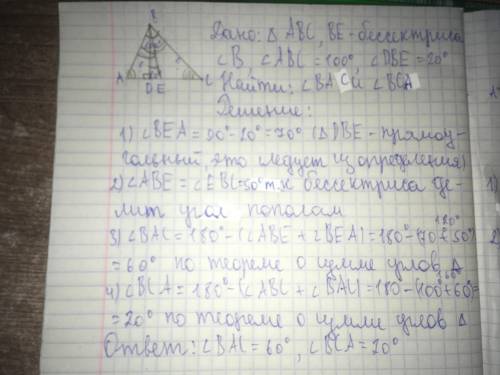 B
A
D E
C
Дано: △ ABC, BE - бессектриса
∠B, ∠ABC = 100°, ∠DBE = 20°
Найти: ∠BAC и ∠BCA
Решение:
1) ∠BEA = 90°-20°=70° (△DBE - прямоу-
гольный, это следует из определения)
2) ∠ABE = ∠EBC=50° т.к бессектриса де-
лит угол пополам
120°
3) ∠BAC = 180° - (∠ABE + ∠BEA) = 180° - (70+50°)
= 60° по теореме о сумме углов △
4) ∠BCA = 180° - (∠ABC + ∠BAC) = 180 - (100+60°)=
= 20° по теореме о сумме углов △
Ответ: ∠BAC = 60°, ∠BCA = 20°